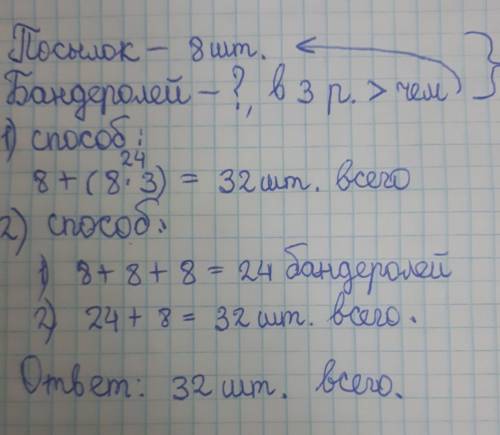 Посылок – 8 шт.
Бандеролей – ?, в 3 р. > чем
1) способ:
24
8 + (8 · 3) = 32 шт. всего
2) способ:
1) 8 + 8 + 8 = 24 бандеролей
2) 24 + 8 = 32 шт. всего.
Ответ: 32 шт. всего.